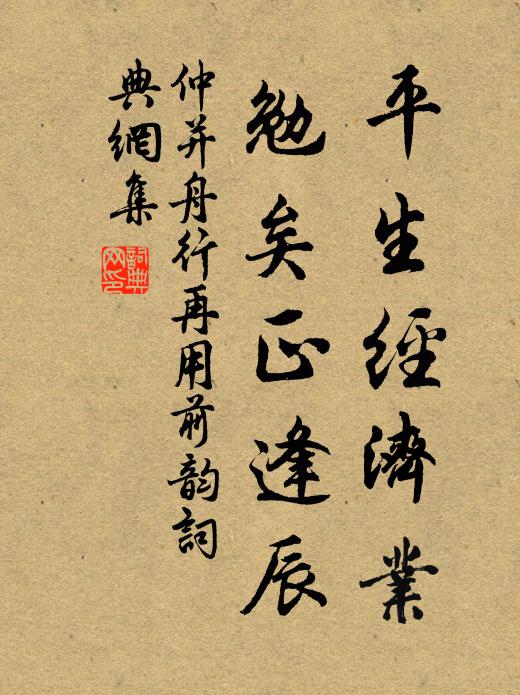 平生經濟業
勉矣正逢辰
仲并舟行再用前韵詞
典網集
詞典
网印